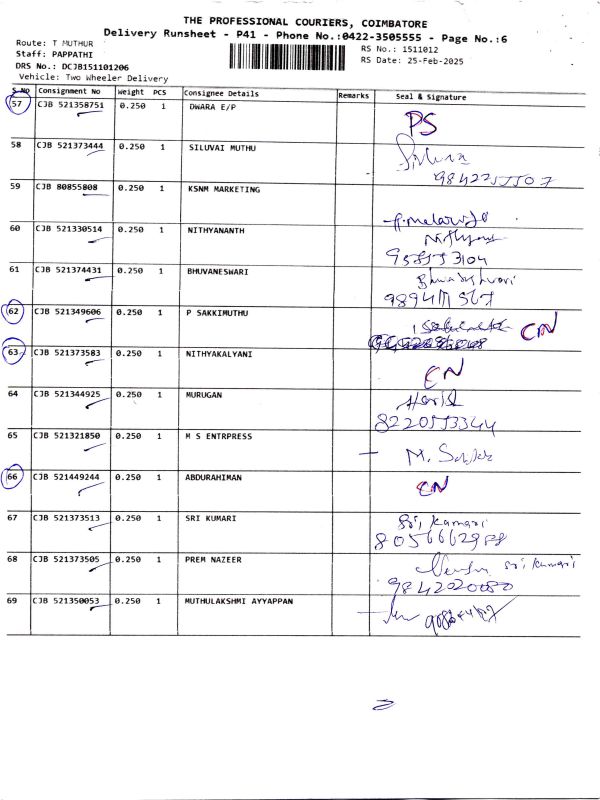 THE PROFESSIONAL COURIERS, COIMBATORE
Delivery Runsheet - P41 - Phone No.:0422-3505555 - Page No.:6
Route: T MUTHUR
Staff: PAPPATHI
DRS No.: DCJB151101206
Vehicle: Two Wheeler Delivery
RS No.: 1511012
RS Date: 25-Feb-2025
S.No Consignment No Weight PCS Consignee Details Remarks Seal & Signature
57 CJB 521358751 0.250 1 DWARA E/P PS
58 CJB 521373444 0.250 1 SILUVAI MUTHU
59 CJB 80855808 0.250 1 KSNM MARKETING
60 CJB 521330514 0.250 1 NITHYANANTH
61 CJB 521374431 0.250 1 BHUVANESWARI
62 CJB 521349606 0.250 1 P SAKKIMUTHU CN
63 CJB 521373583 0.250 1 NITHYAKALYANI CN
64 CJB 521344925 0.250 1 MURUGAN
8220553344
65 CJB 521321850 0.250 1 M S ENTRPRESS
66 CJB 521449244 0.250 1 ABDURAHIMAN CN
67 CJB 521373513 0.250 1 SRI KUMARI Sri, Kumari
8056662988
68 CJB 521373505 0.250 1 PREM NAZEER Sri Kumari
9842020080
69 CJB 521350053 0.250 1 MUTHULAKSHMI AYYAPPAN